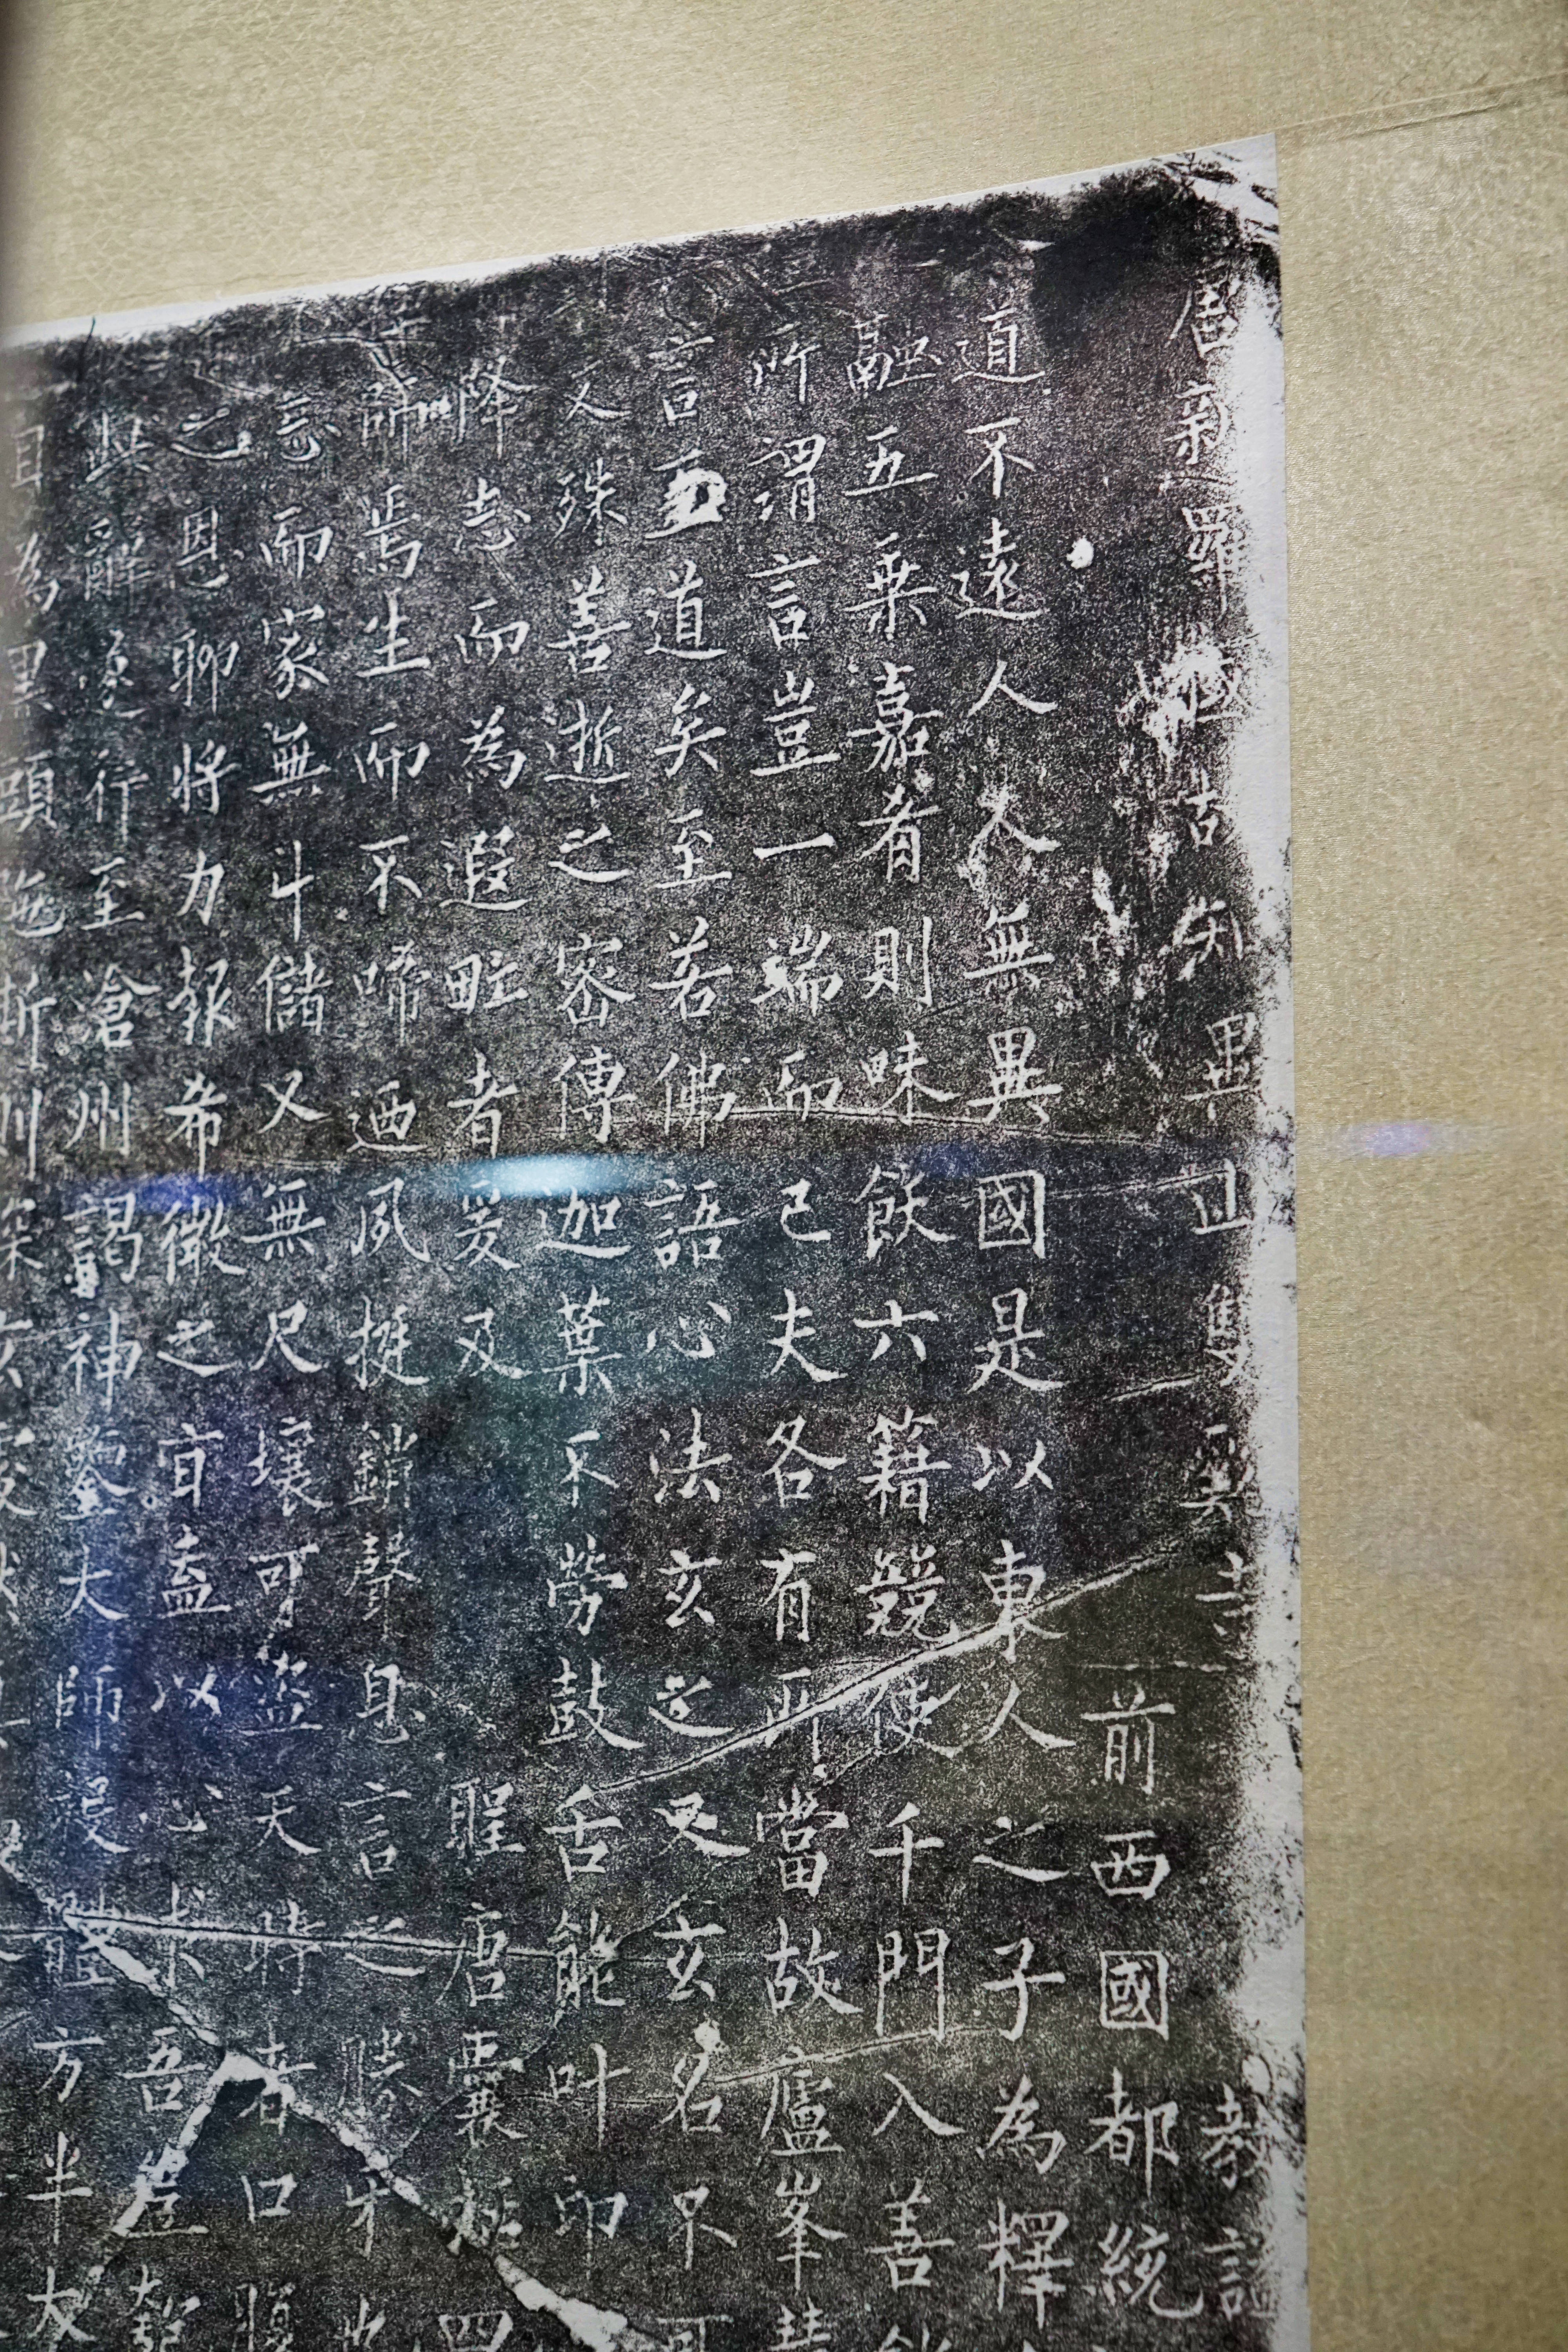 唐新羅國故知異山雙谿寺 教謚
前西國都統
道不遠人人無異國是以東人之子為釋
融五乗嘉肴則味飫六籍競使千門入善能
所謂言豈一端而已夫各有所當故廬峯慧
言至道矣至若佛語心法玄之又玄名不可
人殊善逝之密傳迦葉不勞鼓舌能叶印
降志而為遐甿者爰及 聖唐囊括四
師焉生而不啼迺夙挺銷聲息言之勝牙也
忘而家無斗儲又無尺壤可盜天時者口腹
之恩聊將力報希微之旨盍以心求吾豈匏
其辭遂行至滄州謁神鑒大師投體方半大
目為黑頭陀斯則